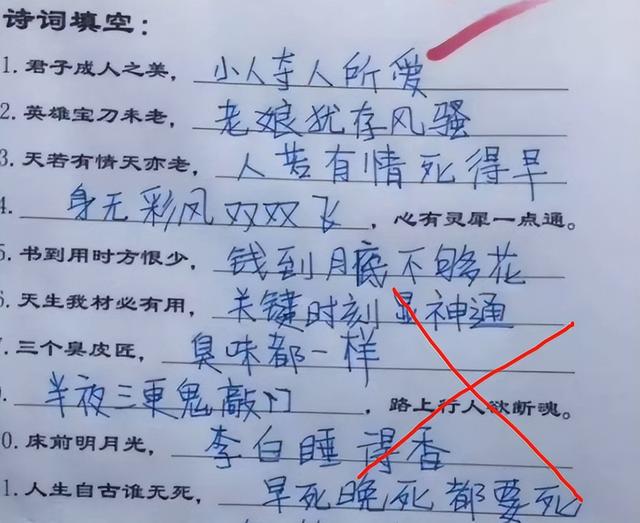 诗词填空：
1. 君子成人之美，小人夺人所爱
2. 英雄宝刀未老，老娘犹存风骚
3. 天若有情天亦老，人若有情死得早
4. 身无彩风双双飞，心有灵犀一点通。
5. 书到用时方恨少，钱到月底不够花
6. 天生我材必有用，关键时刻显神通
7. 三个臭皮匠，臭味都一样
半夜三更鬼敲门，路上行人欲断魂。
0. 床前明月光，李白睡得香
1. 人生自古谁无死，早死晚死都要死